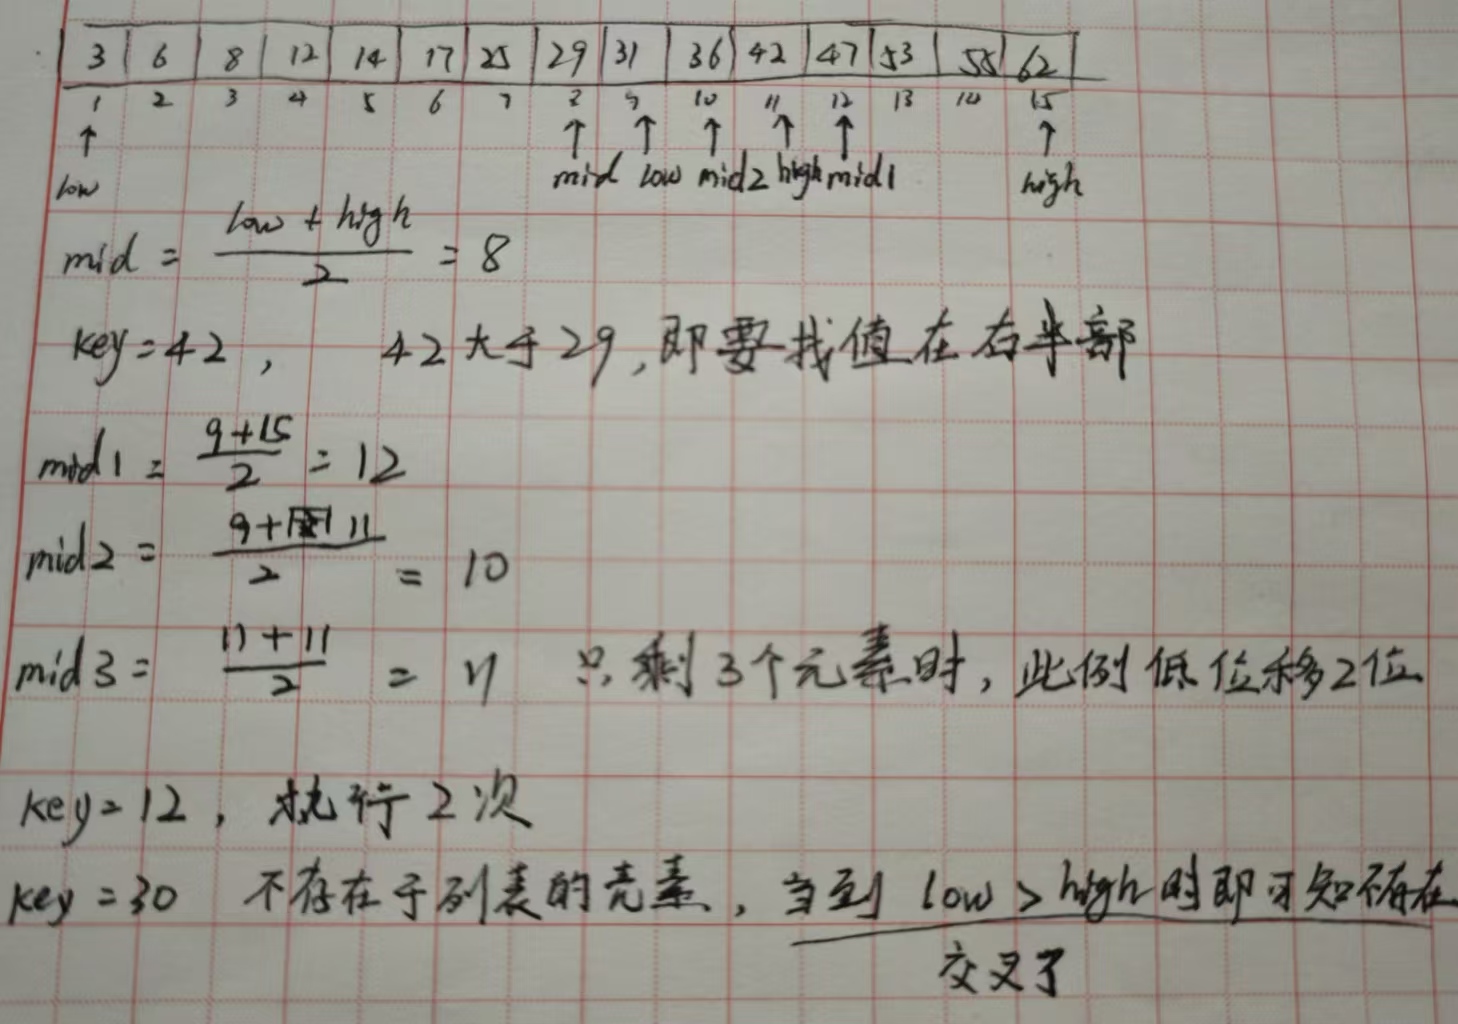 3 6 8 12 14 17 25 29 31 36 42 47 53 55 62
1 2 3 4 5 6 7 8 9 10 11 12 13 14 15
↑ ↑ ↑ ↑ ↑ ↑ ↑
low mid low mid2 high mid1 high
mid = (low + high)/2 = 8
key=42, 42大于29,即要找值在右半部
mid1 = (9+15)/2 = 12
mid2 = (9+11)/2 = 10
mid3 = (11+11)/2 = 11 只剩3个元素时,此例低位移2位
key=12,执行2次
key=30 不存在于列表的元素,当到low>high时即可知不存在
交叉了